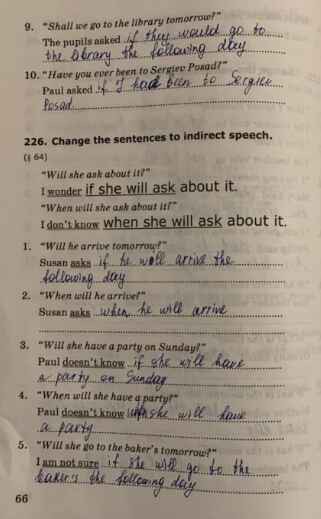 9. "Shall we go to the library tomorrow?"
The pupils asked if they would go to
the library the following day
10. "Have you ever been to Sergiev Posad?"
Paul asked if I had been to Sergiev
Posad
226. Change the sentences to indirect speech.
(§ 64)
"Will she ask about it?"
I wonder if she will ask about it.
"When will she ask about it?"
I don't know when she will ask about it.
1. "Will he arrive tomorrow?"
Susan asks if he will arrive the
following day
2. "When will he arrive?"
Susan asks when he will arrive
3. "Will she have a party on Sunday?"
Paul doesn't know if she will have
a party on Sunday
4. "When will she have a party?"
Paul doesn't know when she will have
a party
5. "Will she go to the baker's tomorrow?"
I am not sure if she will go to the
baker's the following day
66